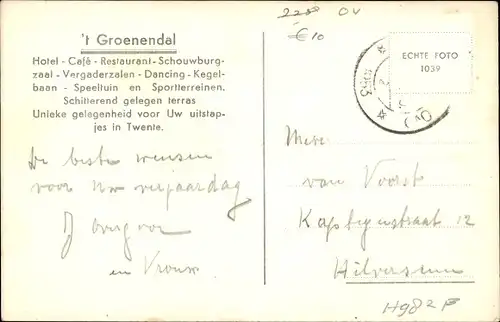 't Groenendal
Hotel - Café - Restaurant - Schouwburg-
zaal - Vergaderzalen - Dancing - Kegel-
baan - Speeltuin en Sportterreinen.
Schitterend gelegen terras
Unieke gelegenheid voor Uw uitstap-
jes in Twente.
De beste wensen
voor Uw verjaardag
en Vrouw
OV
€10
ECHTE FOTO
1039
van Voorst
12
Hilversum
H982F